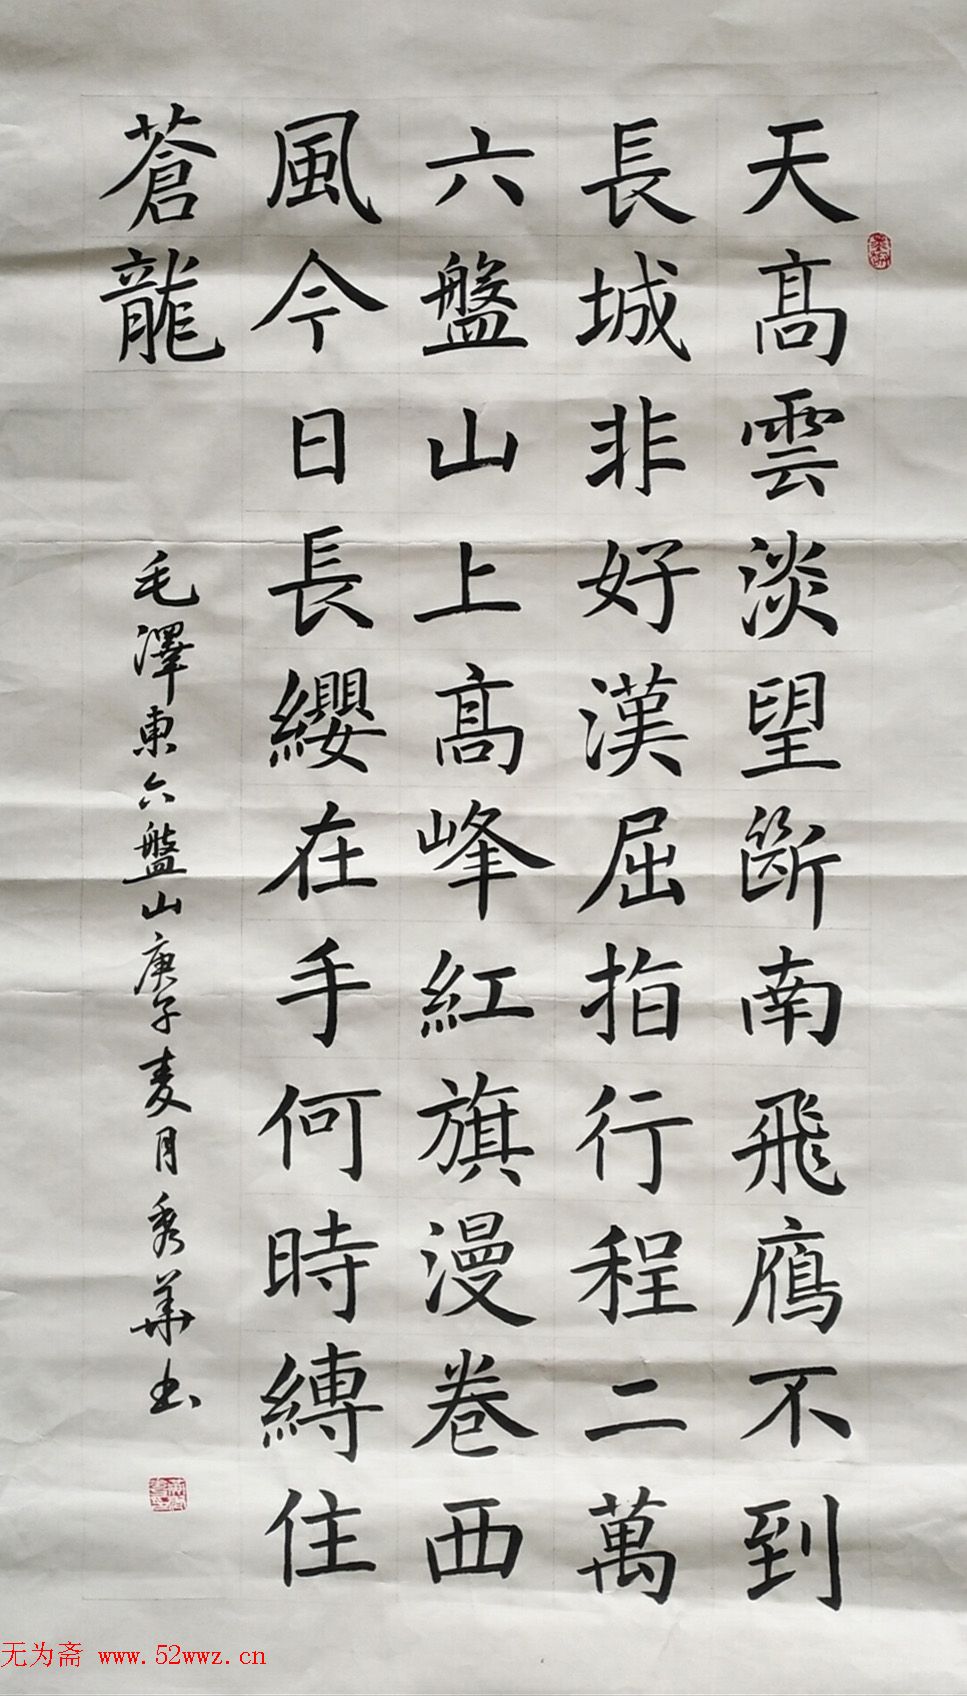 天高雲淡望斷南飛鴈不到
長城非好漢屈指行程二萬
六盤山上高峰紅旗漫卷西
風今日長纓在手何時縛住
蒼龍
毛澤東六盤山庚子麦月秀華书
无为斋 www.52wwz.cn